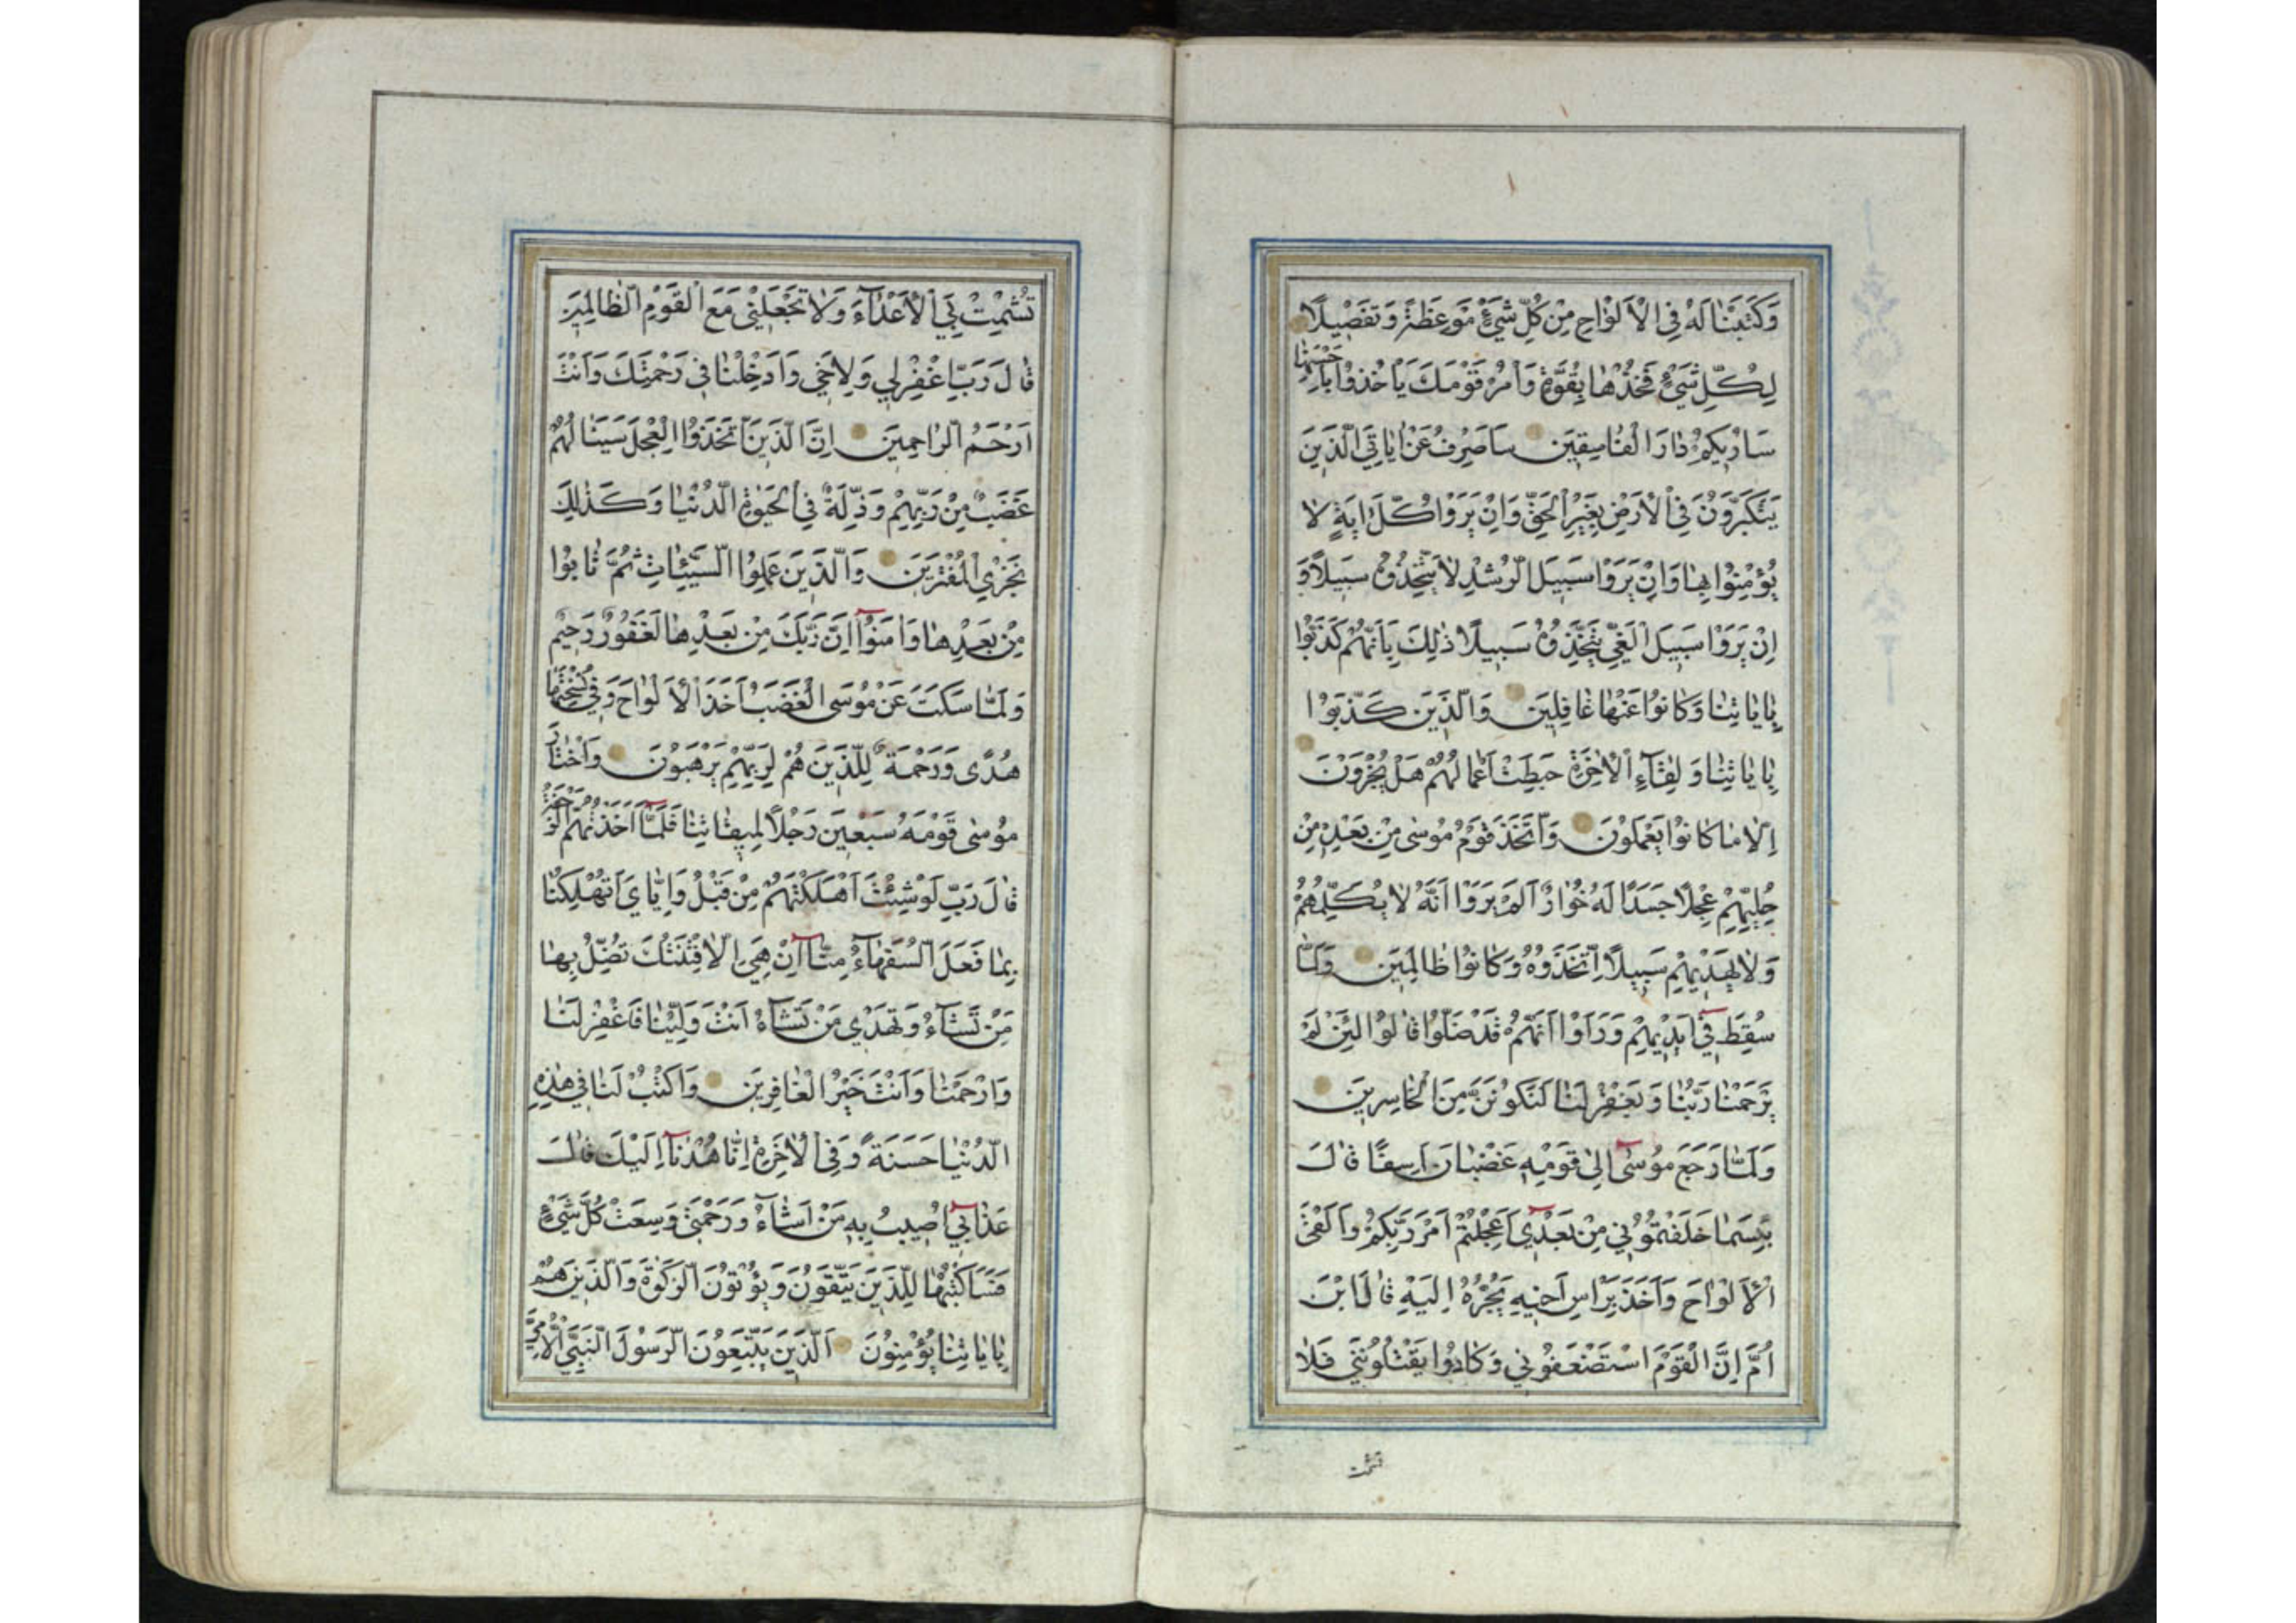 وَكَتَبْنَا لَهُ فِي الْأَلْوَاحِ مِنْ كُلِّ شَيْءٍ مَوْعِظَةً وَتَفْصِيلًا
لِكُلِّ شَيْءٍ فَخُذْهَا بِقُوَّةٍ وَأْمُرْ قَوْمَكَ يَأْخُذُوا بِأَحْسَنِهَا
سَأُرِيكُمْ دَارَ الْفَاسِقِينَ سَأَصْرِفُ عَنْ آيَاتِيَ الَّذِينَ
يَتَكَبَّرُونَ فِي الْأَرْضِ بِغَيْرِ الْحَقِّ وَإِنْ يَرَوْا كُلَّ آيَةٍ لَا
يُؤْمِنُوا بِهَا وَإِنْ يَرَوْا سَبِيلَ الرُّشْدِ لَا يَتَّخِذُوهُ سَبِيلًا وَ
إِنْ يَرَوْا سَبِيلَ الْغَيِّ يَتَّخِذُوهُ سَبِيلًا ذَلِكَ بِأَنَّهُمْ كَذَّبُوا
بِآيَاتِنَا وَكَانُوا عَنْهَا غَافِلِينَ وَالَّذِينَ كَذَّبُوا
بِآيَاتِنَا وَلِقَاءِ الْآخِرَةِ حَبِطَتْ أَعْمَالُهُمْ هَلْ يُجْزَوْنَ
إِلَّا مَا كَانُوا يَعْمَلُونَ وَاتَّخَذَ قَوْمُ مُوسَى مِنْ بَعْدِهِ مِنْ
حُلِيِّهِمْ عِجْلًا جَسَدًا لَهُ خُوَارٌ أَلَمْ يَرَوْا أَنَّهُ لَا يُكَلِّمُهُمْ
وَلَا يَهْدِيهِمْ سَبِيلًا اتَّخَذُوهُ وَكَانُوا ظَالِمِينَ وَلَمَّا
سُقِطَ فِي أَيْدِيهِمْ وَرَأَوْا أَنَّهُمْ قَدْ ضَلُّوا قَالُوا لَئِنْ لَمْ
يَرْحَمْنَا رَبُّنَا وَيَغْفِرْ لَنَا لَنَكُونَنَّ مِنَ الْخَاسِرِينَ
وَلَمَّا رَجَعَ مُوسَى إِلَى قَوْمِهِ غَضْبَانَ أَسِفًا قَالَ
بِئْسَمَا خَلَفْتُمُونِي مِنْ بَعْدِي أَعَجِلْتُمْ أَمْرَ رَبِّكُمْ وَأَلْقَى
الْأَلْوَاحَ وَأَخَذَ بِرَأْسِ أَخِيهِ يَجُرُّهُ إِلَيْهِ قَالَ ابْنَ
أُمَّ إِنَّ الْقَوْمَ اسْتَضْعَفُونِي وَكَادُوا يَقْتُلُونَنِي فَلَا
تشمت
تُشْمِتْ بِيَ الْأَعْدَاءَ وَلَا تَجْعَلْنِي مَعَ الْقَوْمِ الظَّالِمِينَ
قَالَ رَبِّ اغْفِرْ لِي وَلِأَخِي وَأَدْخِلْنَا فِي رَحْمَتِكَ وَأَنْتَ
أَرْحَمُ الرَّاحِمِينَ إِنَّ الَّذِينَ اتَّخَذُوا الْعِجْلَ سَيَنَالُهُمْ
غَضَبٌ مِنْ رَبِّهِمْ وَذِلَّةٌ فِي الْحَيٰوةِ الدُّنْيَا وَكَذَلِكَ
نَجْزِي الْمُفْتَرِينَ وَالَّذِينَ عَمِلُوا السَّيِّئَاتِ ثُمَّ تَابُوا
مِنْ بَعْدِهَا وَآمَنُوا إِنَّ رَبَّكَ مِنْ بَعْدِهَا لَغَفُورٌ رَحِيمٌ
وَلَمَّا سَكَتَ عَنْ مُوسَى الْغَضَبُ أَخَذَ الْأَلْوَاحَ وَفِي نُسْخَتِهَا
هُدًى وَرَحْمَةٌ لِلَّذِينَ هُمْ لِرَبِّهِمْ يَرْهَبُونَ وَاخْتَارَ
مُوسَى قَوْمَهُ سَبْعِينَ رَجُلًا لِمِيقَاتِنَا فَلَمَّا أَخَذَتْهُمُ الرَّجْفَةُ
قَالَ رَبِّ لَوْ شِئْتَ أَهْلَكْتَهُمْ مِنْ قَبْلُ وَإِيَّايَ أَتُهْلِكُنَا
بِمَا فَعَلَ السُّفَهَاءُ مِنَّا إِنْ هِيَ إِلَّا فِتْنَتُكَ تُضِلُّ بِهَا
مَنْ تَشَاءُ وَتَهْدِي مَنْ تَشَاءُ أَنْتَ وَلِيُّنَا فَاغْفِرْ لَنَا
وَارْحَمْنَا وَأَنْتَ خَيْرُ الْغَافِرِينَ وَاكْتُبْ لَنَا فِي هَذِهِ
الدُّنْيَا حَسَنَةً وَفِي الْآخِرَةِ إِنَّا هُدْنَا إِلَيْكَ قَالَ
عَذَابِي أُصِيبُ بِهِ مَنْ أَشَاءُ وَرَحْمَتِي وَسِعَتْ كُلَّ شَيْءٍ
فَسَأَكْتُبُهَا لِلَّذِينَ يَتَّقُونَ وَيُؤْتُونَ الزَّكٰوةَ وَالَّذِينَ هُمْ
بِآيَاتِنَا يُؤْمِنُونَ الَّذِينَ يَتَّبِعُونَ الرَّسُولَ النَّبِيَّ الْأُمِّيَّ